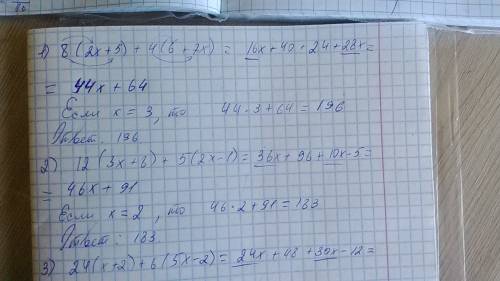 1) 8(2x+5)+4(6+7x) = 16x+40+24+28x=
= 44x+64
Если x=3, то 44·3+64=196
Ответ 196
2) 12(3x+8)+5(2x-1)=36x+96+10x-5=
= 46x+91
Если x=2, то 46·2+91=183
Ответ: 183.
3) 24(x+2)+6(5x-2)=24x+48+30x-12=